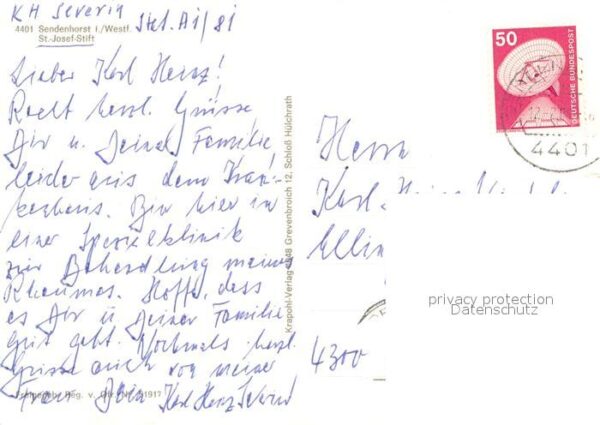 KH Severin
Stat. A1/81
4401 Sendenhorst i./Westf.
St.-Josef-Stift
Lieber Karl Heinz!
Recht herzl. Grüsse
Dir u. Deiner Familie
leider aus dem Kran-
kenhaus. Bin hier in
einer Spezialklinik
zur Behandlung meines
Rheumas. Hoffe, dass
es Dir u. Deiner Familie
gut geht. Nochmals herzl.
Grüsse auch von meiner
Frau Dein Karl Heinz Severin
Krapohl-Verlag 4048 Grevenbroich 12, Schloß Hülchrath
50
DEUTSCHE BUNDESPOST
4401
Herrn
Karl-
4300
privacy protection
Datenschutz